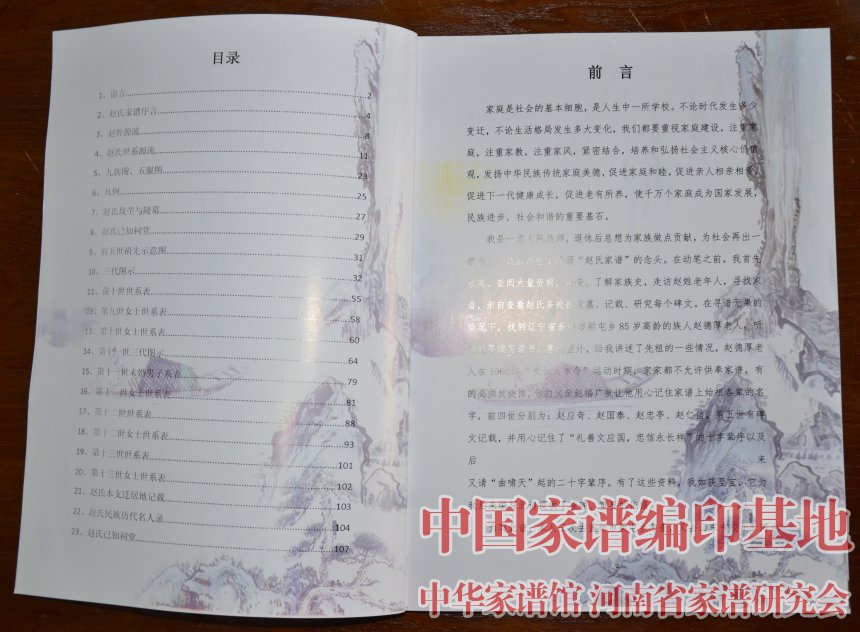 目录
1、前言 2
2、赵氏家谱序言 4
3、赵姓源流 8
4、赵氏世系源流 11
5、九族图、五服图 23
6、凡例 25
7、赵氏坟茔与陵墓 27
8、赵氏已知祠堂 29
9、前五世祖先示意图 31
10、三代图示 32
11、前十世世系表 55
12、第九世女士世系表 58
13、第十世女士世系表 60
14、第十一世三代图示 64
15、第十一世未婚男子系表 79
16、第十一世女士世系表 83
17、第十二世世系表 88
18、第十二世女士世系表 93
19、第十三世世系表 101
20、第十三世女士世系表 102
21、赵氏本支迁居地记载 103
22、赵氏民族历代名人录 104
23、赵氏已知祠堂 107
前 言
家庭是社会的基本细胞，是人生中一所学校。不论时代发生多少
变迁，不论生活格局发生多大变化，我们都要重视家庭建设，注重家
庭，注重家教，注重家风，紧密结合，培养和弘扬社会主义核心价值
观，发扬中华民族传统家庭美德，促进家庭和睦，促进亲人相亲相爱，
促进下一代健康成长，促进老有所养，使千万个家庭成为国家发展，
民族进步，社会和谐的重要基石。
我是一名人民教师，退休后总想为家族做点贡献，为社会再出一
“赵氏家谱”的念头。在动笔之前，我首先
查阅大量资料，了解家族史，走访赵姓老年人，寻找家
谱，亲自查看赵氏多处墓、记载、研究每个碑文。在寻谱无果的
情况下，找到辽宁省屯乡 85 岁高龄的族人赵德厚老人，听
给我讲述了先祖的一些情况，赵德厚老
人在运动时期，家家都不允许供奉家谱，有
的父亲赵广就让他用心记住家谱上始祖各辈的名
字，前四世分别为：赵应奇、赵国泰、赵忠亭、赵仁，第五世有碑
文记载，并用心记住了“礼善文应国，忠信永长祥”的十字辈序以及
后 来
又请“曲啸天”起的二十字辈序。有了这些资料，我如获至宝，它为
中国家谱编印基地
中华家谱馆 河南省家谱研究会